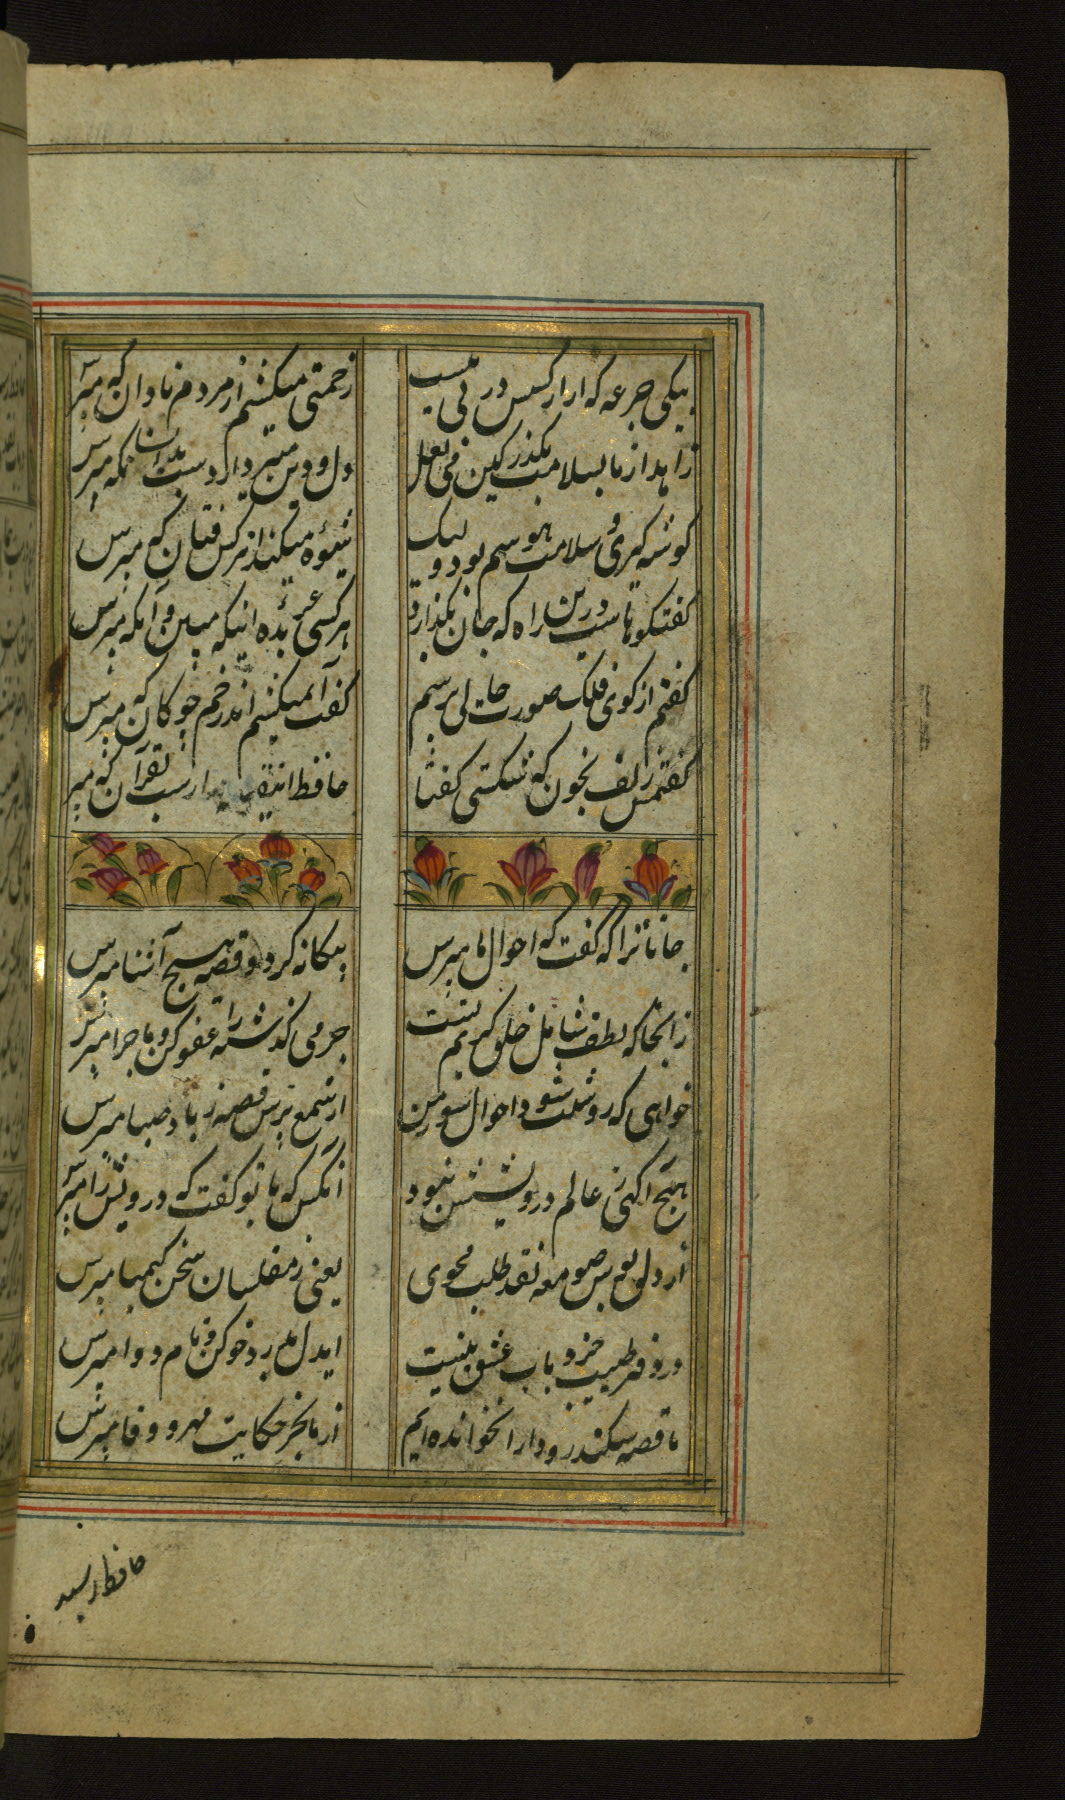 بیکی جرعه که ازار کسش در پی نیست
زحمتی میکشم از مردم نادان که مپرس
زاهد از ما بسلامت بگذر کین می لعل
دل و دین میبرد از دست بدانسان که مپرس
گوشه گیری و سلامت هوسم بود ولیک
شیوه میکند آن نرگس فتان که مپرس
گفتگوهاست درین راه که جان بگدازد
هر کسی عربده اینکه مبین و آنکه مپرس
گفتم از گوی فلک صورت حالی پرسم
گفت آن میکشم اندر خم چوگان که مپرس
گفتمش زلف بخون که شکستی گفتا
حافظ این قصه دراز است بقرآن که مپرس
جانا ترا که گفت که احوال ما مپرس
بیگانه گرد و قصه هیچ آشنا مپرس
زانجا که لطف شامل خلق کریم تست
جرمی گذشته را عفو کن و ماجرا مپرس
خواهی که روشنت شود احوال سوز من
از شمع پرس قصه ز باد صبا مپرس
هیچ آگهی ز عالم درویشیش نبود
آنکس که با تو گفت که درویش را مپرس
از دلق پوش صومعه نقد طلب مجوی
یعنی ز مفلسان سخن کیمیا مپرس
در دفتر طبیب خرد باب عشق نیست
ایدل بدرد خو کن و نام دوا مپرس
ما قصه سکندر و دارا نخوانده ایم
از ما بجز حکایت مهر و وفا مپرس
حافظ رسید